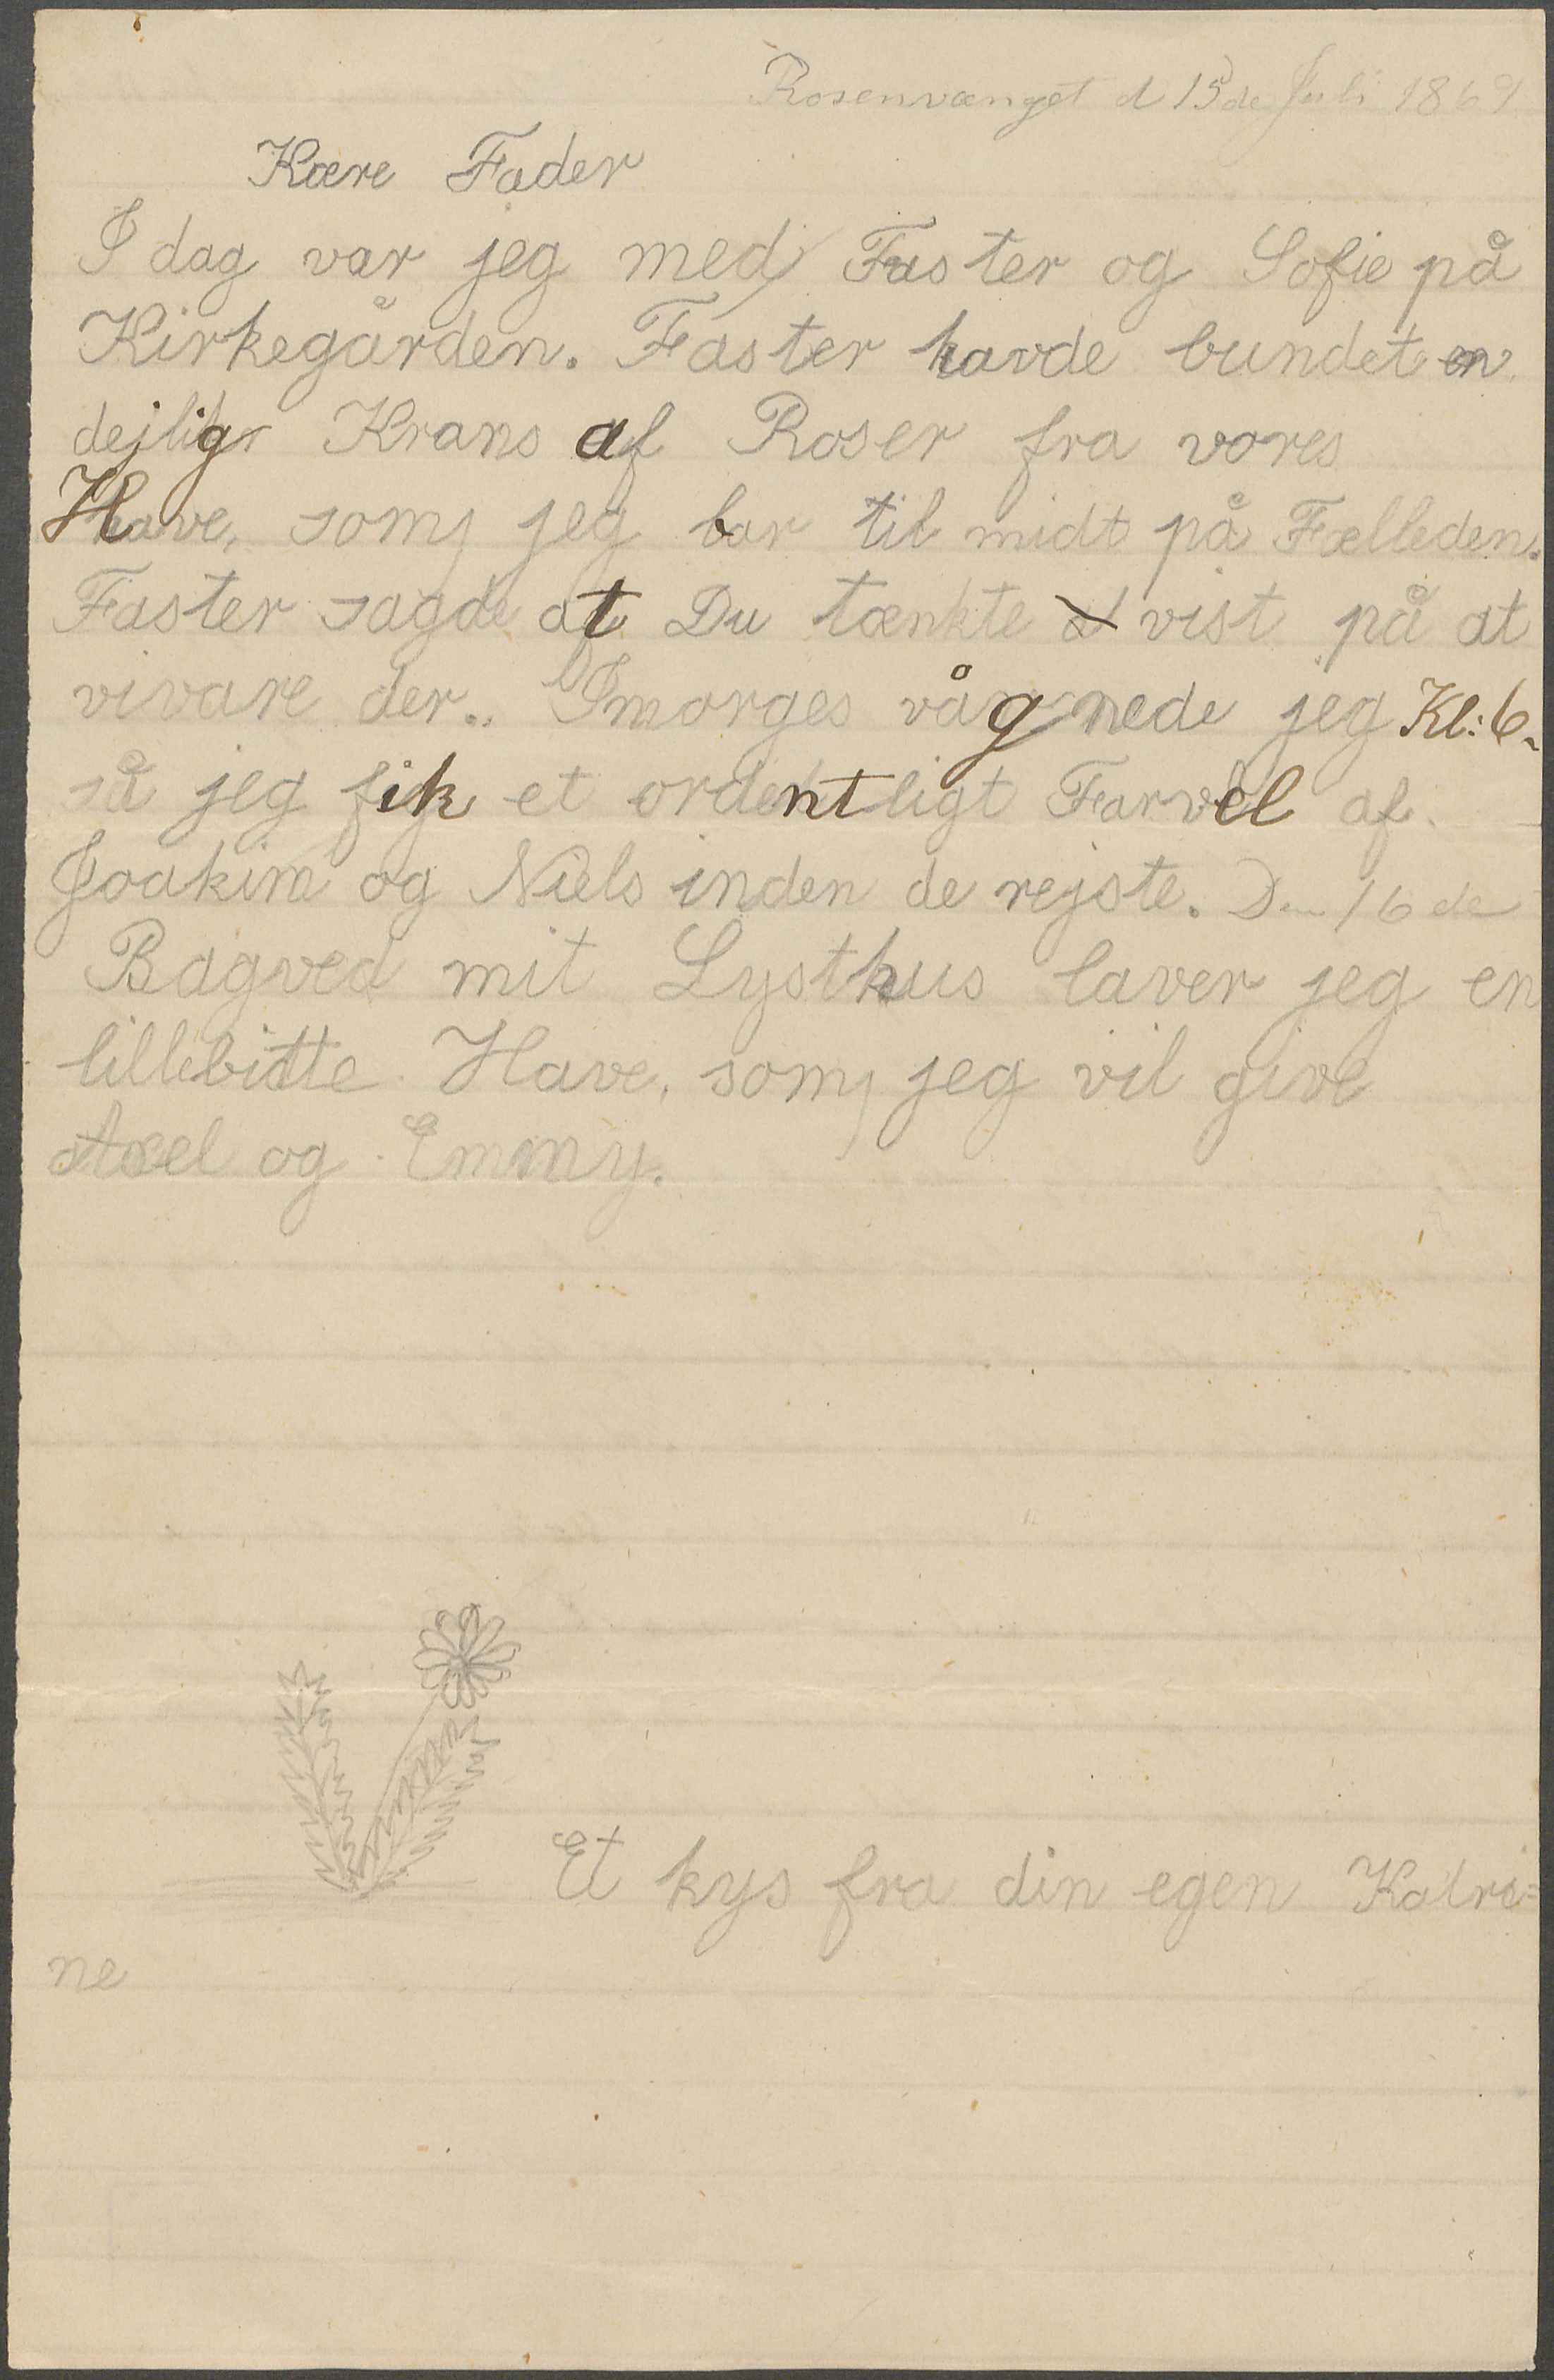 Rosenvænget d 15de Juli 1869
Kære Fader
I dag var jeg med Faster og Sofie på
Kirkegården. Faster havde bundet en
dejlig Krans af Roser fra vores
Have, som jeg bar til midt på Fælleden.
Faster sagde at Du tænkte vist på at
vivare der. Imorges vågnede jeg Kl: 6.
så jeg fik et ordentligt Farvel af
Joakim og Niels inden de rejste. Den 16de
Bagved mit Lysthus laver jeg en
lillebitte Have, som jeg vil give
Axel og Emmy.
Et kys fra din egen Katri=
ne